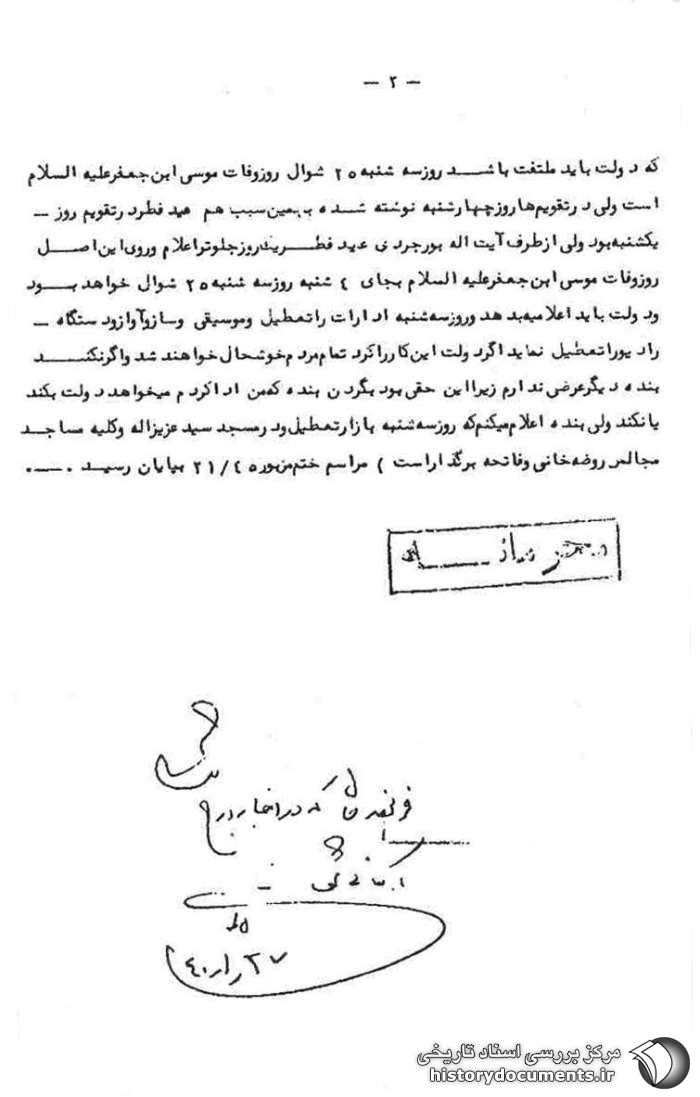 — ۲ —
که دولت باید ملتفت باشد روزسه شنبه ۲۵ شوال روزوفات موسی ابن جعفرعلیه السلام
است ولی درتقویم‌ها روزچهارشنبه نوشته شده بهمین سبب هم عید فطردرتقویم روز —
یکشنبه بود ولی ازطرف آیت اله بورجردی عید فطریک روز جلوتراعلام وروی این اصل
روزوفات موسی ابن جعفرعلیه السلام بجای ٤ شنبه روزسه شنبه ۲۵ شوال خواهد بود
ودولت باید اعلامیه بدهد وروزسه شنبه ادارات راتعطیل وموسیقی وسازوآوازودستگاه —
رادیوراتعطیل نماید اگردولت این کارراکرد تمام مردم خوشحال خواهند شد واگرنکند
بنده دیگرعرضی ندارم زیرااین حقی بود بگردن بنده که من اداکردم میخواهد دولت بکند
یانکند ولی بنده اعلام میکنم که روزسه شنبه بازارتعطیل ودرمسجد سیدعزیزاله وکلیه مساجد
مجالس روضه خانی وفاتحه برگذاراست ) مراسم ختم مزبوره ۲۱/٤۵ بپایان رسید .—.
محرمانه
که در اخبار درج
۲۷ر۱ر٤۰
مرکز بررسی اسناد تاریخی
historydocuments.ir